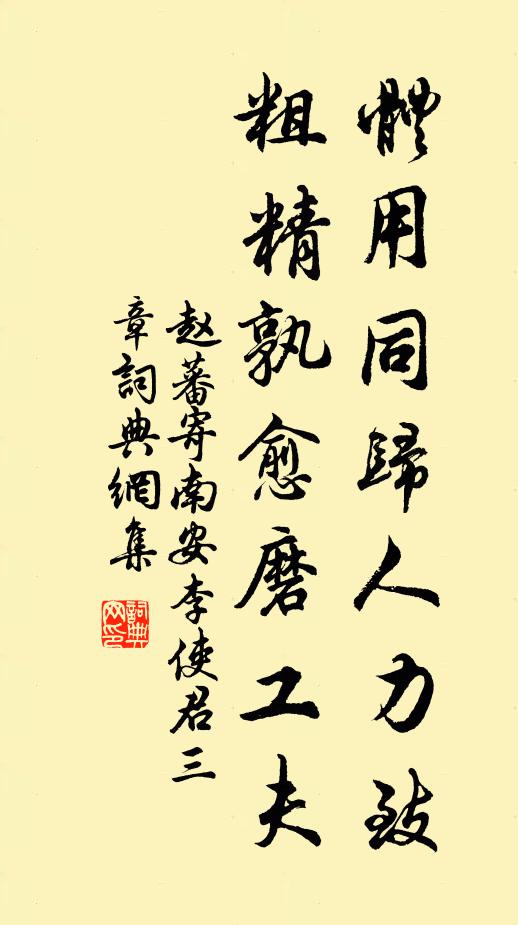 體用同歸人力致
粗精孰愈磨工夫
赵蕃寄南安李使君三
章詞典網集
詞典
网印